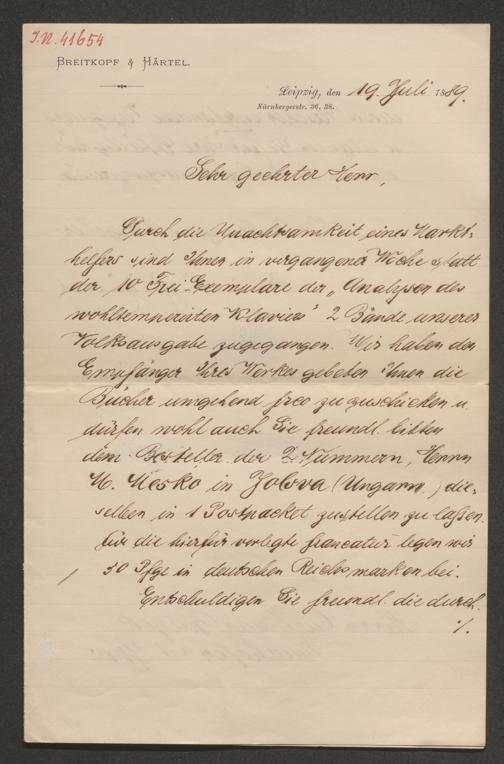 I.N. 41654
BREITKOPF & HÄRTEL.
Leipzig, den 19. Juli 1889.
Nürnbergerstr. 36, 38.
Sehr geehrter Herr,
Durch die Unachtsamkeit eines Markt-
helfers sind Ihnen in vergangener Woche statt
der 10 Frei-Exemplare der „Analysen des
wohltemperirten Klaviers" 2 Bände unserer
Volksausgabe zugegangen. Wir haben den
Empfänger Ihres Werkes gebeten Ihnen die
Bücher umgehend frco zuzuschicken u.
dürfen wohl auch Sie freundl. bitten
dem Besteller der 2 Nummern, Herrn
M. Mesko in Jolsva (Ungarn) die-
selben in 1 Postpacket zustellen zu lassen.
Für die hierfür verlegte francatur legen wir
50 Pfge in deutschen Reichsmarken bei.
Entschuldigen Sie freundl. die durch
./.